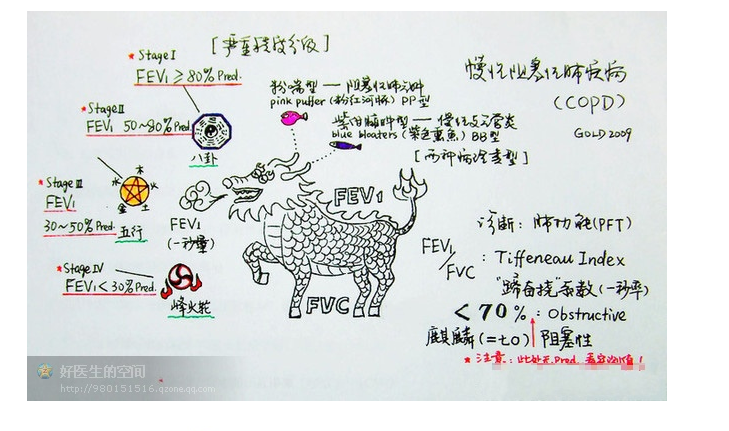 [严重程度分级]
*Stage I
FEV₁ ≥ 80% Pred.
*Stage II
FEV₁ 50~80% Pred.
八卦
*Stage III
FEV₁
30~50% Pred.
木
火
水
金
土
五行
*Stage IV
FEV₁ < 30% Pred.
烽火轮
慢性阻塞性肺疾病
(COPD)
GOLD 2009
粉喘型 — 阻塞性肺气肿
pink puffer (粉红河豚) PP型
紫绀臃肿型 — 慢性支气管炎
blue bloaters (紫色熏鱼) BB型
[两种病除类型]
FEV₁
(一秒量)
FEV₁
FVC
诊断: 肺功能(PFT)
FEV₁/FVC : Tiffeneau Index
"蹄奋挠"系数 (一秒率)
< 70% : Obstructive
麒麟 (=七0) 阻塞性
*注意: 此处无 Pred.
好医生的空间
http://980151516.qzone.qq.com